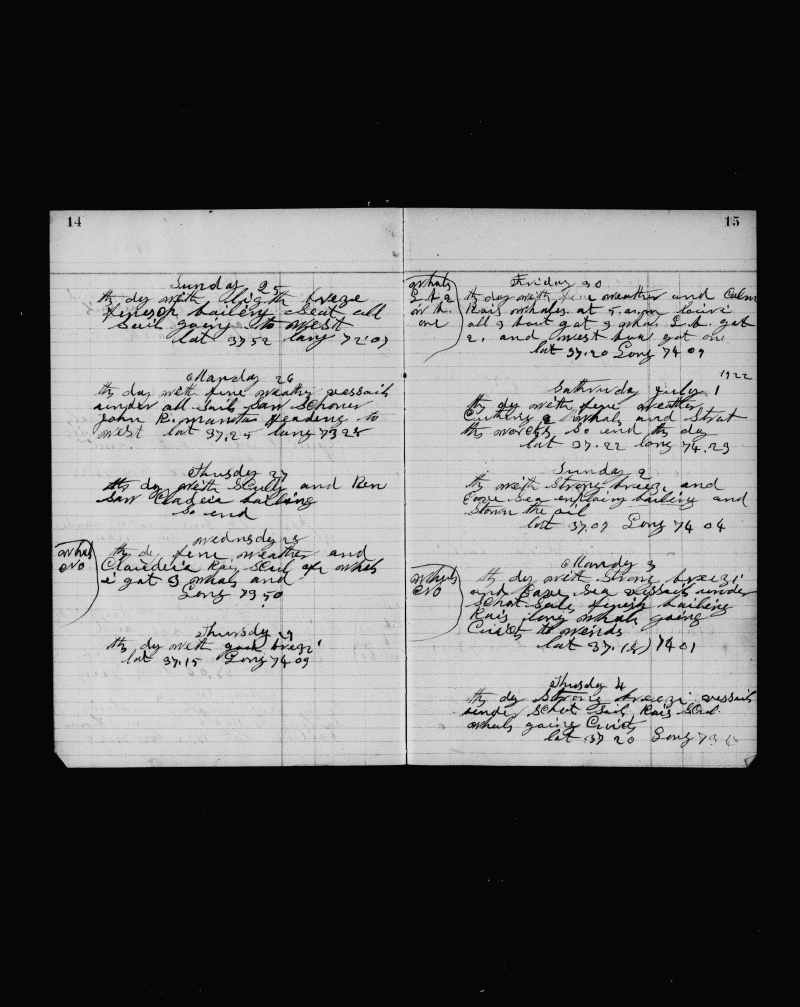 14
Sunday 25
th dy with ligth breze
finesh bailery Seat all
Sail going to West
lat 37 52 long 72.07
Manday 26
th day with fine weather vessails
under all Sail Saw Schoner
John R. Manta Heading to
West lat 37,25 long 73 25
Thusday 27
th dy with Scully and Ren
Saw Cladeia bailing
So end
whals
No
wednsday 28
th dy fine weather and
Claudeia Rais Scul of whals
i gat 3 whals and
Long 73 50
Thursday 29
th dy with good brezi
lat 37.15 Long 74 09
15
whals
L b 2
one
Friday 30
th day with fine weather and Calm
Rais whales. at 5. a.m louire
all 3 bout gat 3 wha. L. b. gat
2. and West bua gat one
lat 37.20 Long 74 09
1922
Satturday july 1
th dy with fine weather
Cutting 2 whals and Strat
th works So end th day
lat 37.22 long 74.23
Sunday 2
th with Strong breez, and
Cove Sea bailing and
Stown the oil
lat 37.07 Long 74 04
whals
No
Manday 3
th dy with Strong breezi
and Cove Sea vessails under
Schot Sails finish bailing
Rais long whals going
Cuicts to winds
lat 37.18 74 01
Thusday 4
th dy Strong breezi vessails
under Schot Sail Rais Scul
whals going Cuicts
lat 37 20 Long 73